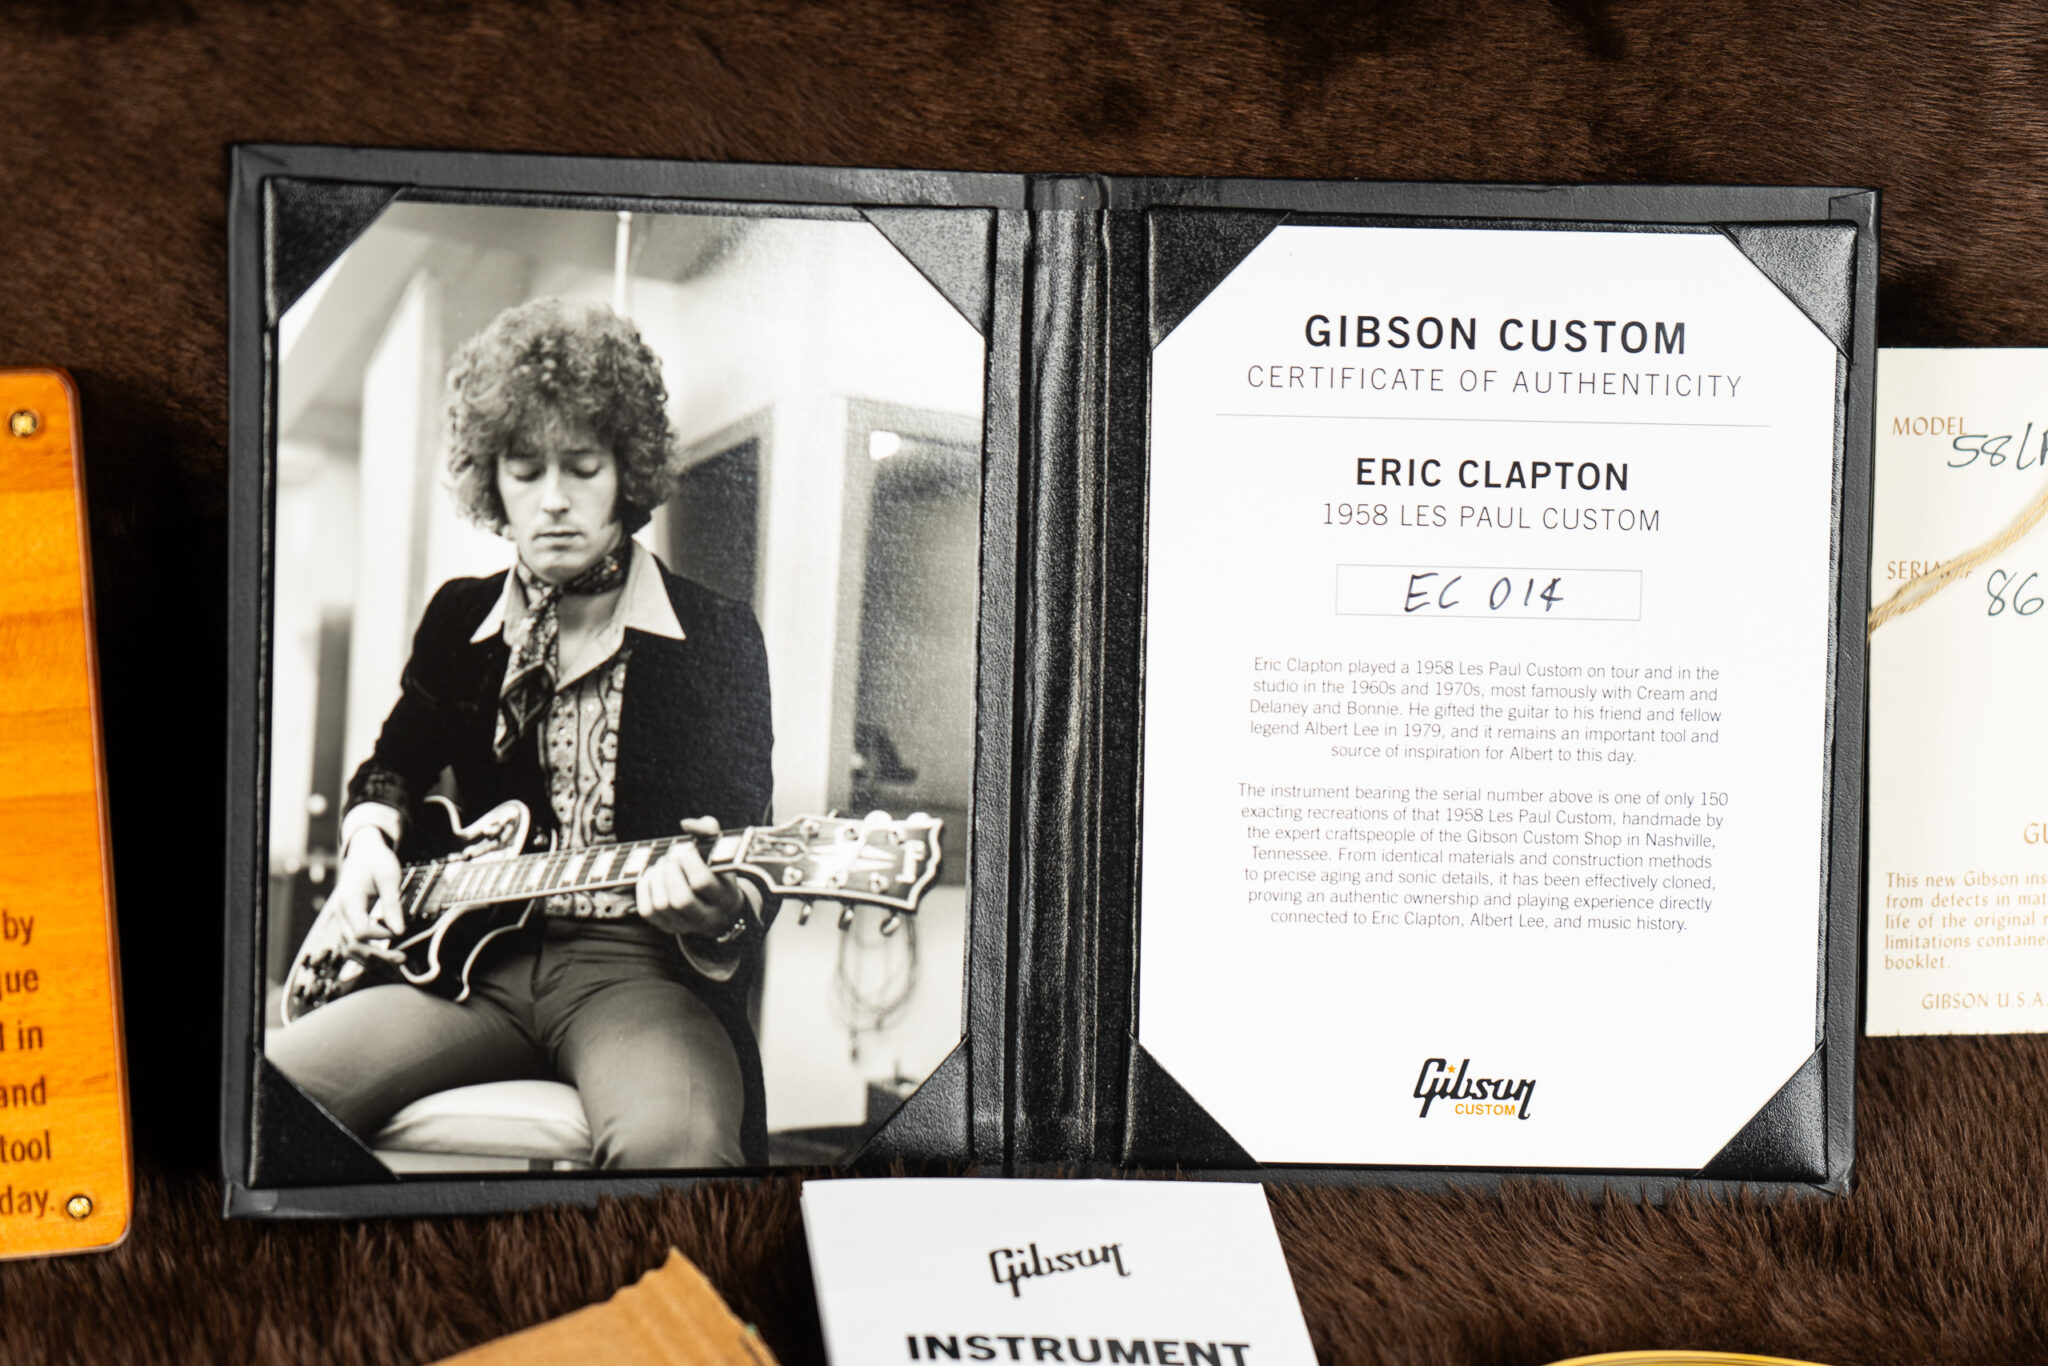 GIBSON CUSTOM
CERTIFICATE OF AUTHENTICITY
ERIC CLAPTON
1958 LES PAUL CUSTOM
EC 014
Eric Clapton played a 1958 Les Paul Custom on tour and in the
studio in the 1960s and 1970s, most famously with Cream and
Delaney and Bonnie. He gifted the guitar to his friend and fellow
legend Albert Lee in 1979, and it remains an important tool and
source of inspiration for Albert to this day.
The instrument bearing the serial number above is one of only 150
exacting recreations of that 1958 Les Paul Custom, handmade by
the expert craftspeople of the Gibson Custom Shop in Nashville,
Tennessee. From identical materials and construction methods
to precise aging and sonic details, it has been effectively cloned,
proving an authentic ownership and playing experience directly
connected to Eric Clapton, Albert Lee, and music history.
Gibson
CUSTOM
by
in
and
tool
day.
MODEL
58
86
This new Gibson
from defects in
life of the original
limitations
booklet.
GIBSON U.S.A.
Gibson
INSTRUMENT